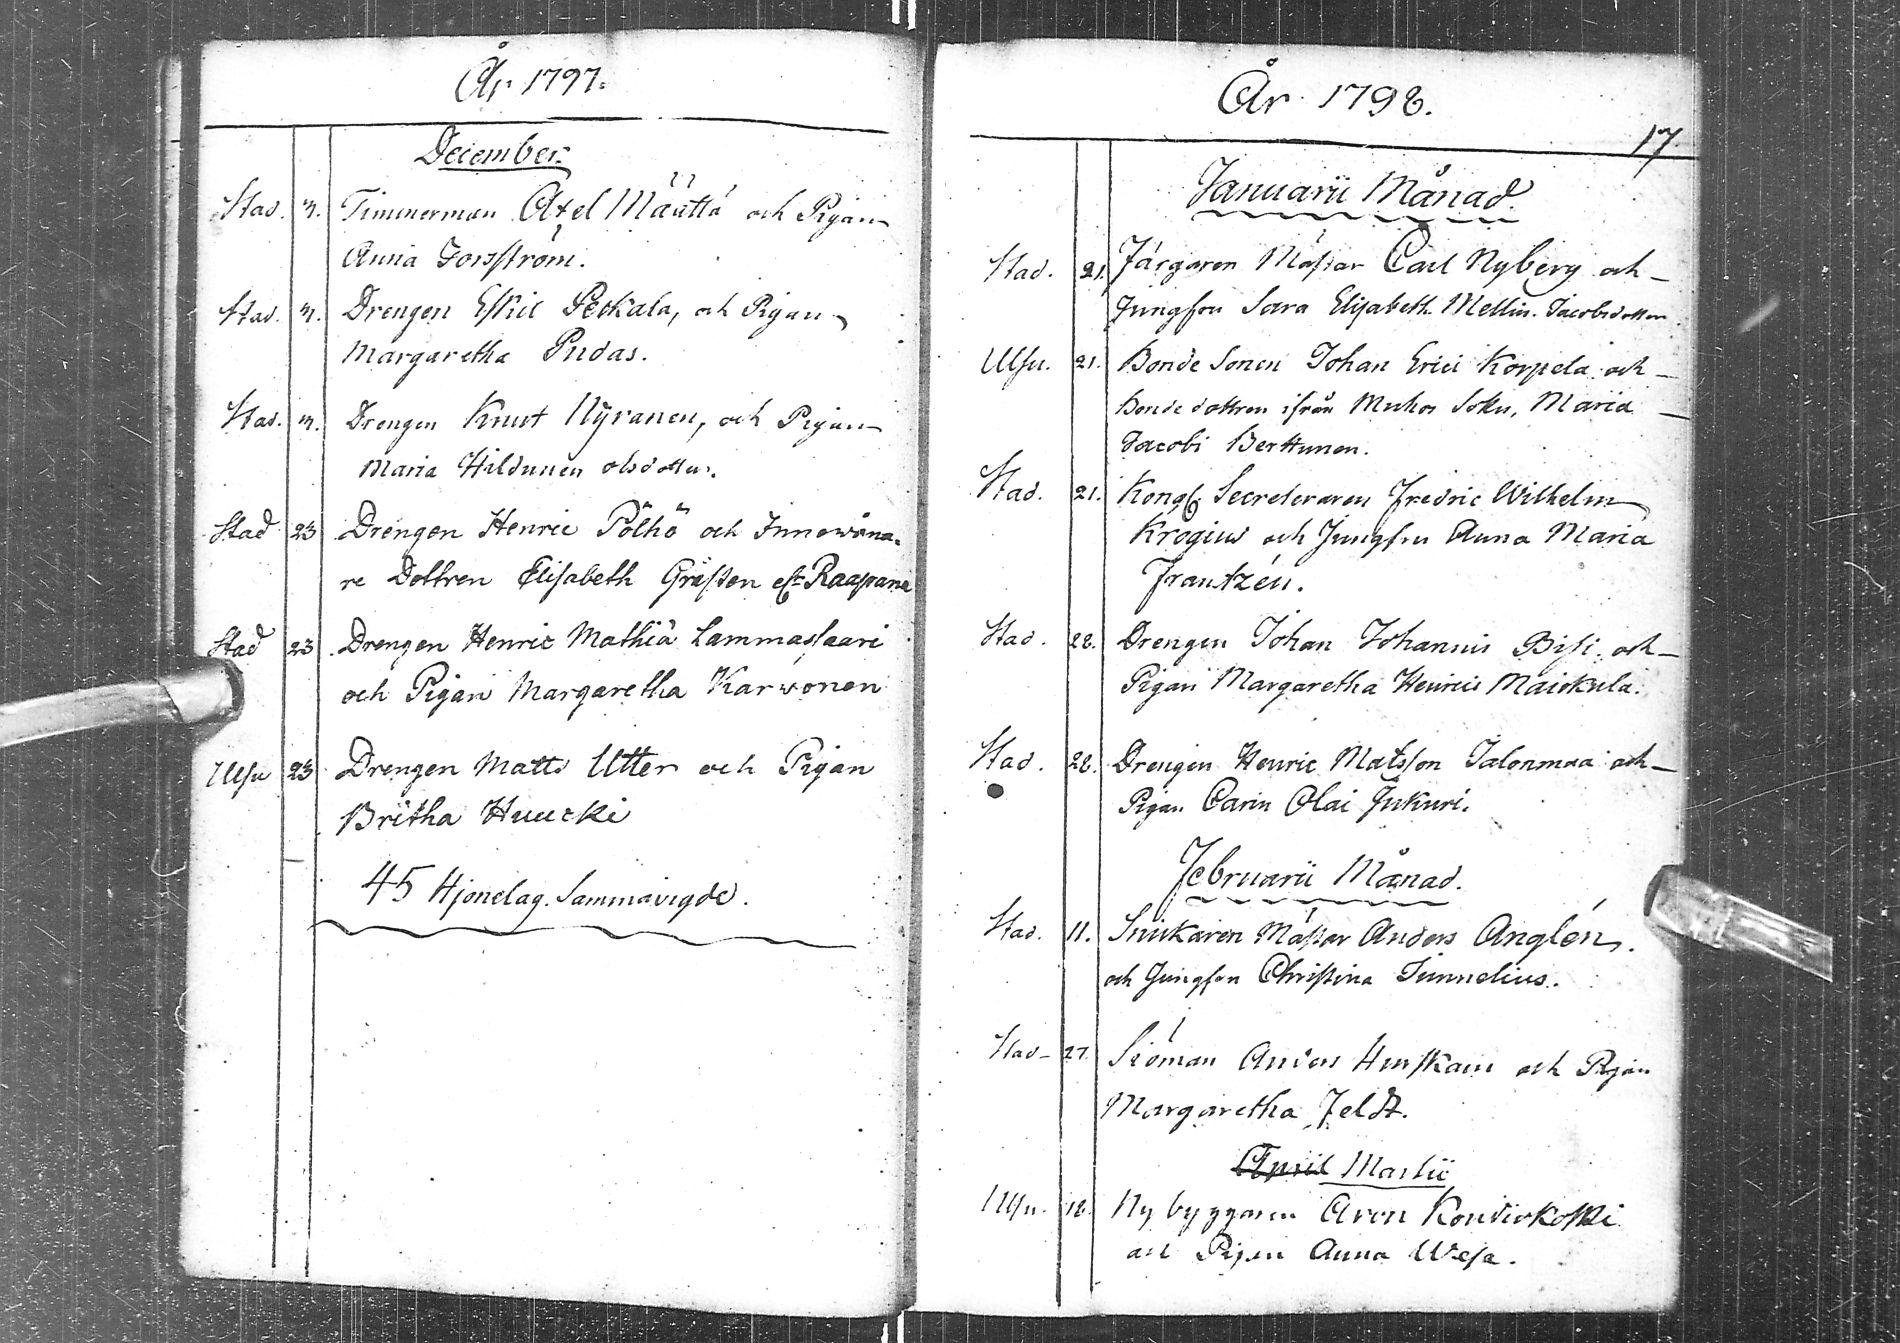 År 1797.
December.
Stad. 3. Timmerman Axel Määttä och Pigan
Anna Forsström.
Stad. 3. Drengen Eskil Peckala, och Pigan
Margaretha Pudas.
Stad. 3. Drengen Knut Kyranen, och Pigan
Maria Hildunen olsdotter.
Stad 23 Drengen Henric Pölhö och Innewåna-
re Dottren Elisabeth Grästen
Stad 23 Drengen Henric Mathiä Lammassaari
och Pigan Margaretha Karwonen
Ulsu 23 Drengen Matts Utter och Pigan
Britha Huucki
45 Hjonelag. Sammavigde.
År 1798.
17
Januarii Månad.
Stad. 21. Färgaren Mästar Carl Nyberg och
Jungfru Sara Elisabeth Mellin. Jacobsdotter
Ulsu. 21. Bonde Sonen Johan Erici Korpela och
Bonde dottren ifrån Muhos Sokn, Maria
Jacobi Berttunen.
Stad. 21. Kongl. Secreteraren Fredric Wilhelm
Krogius och Jungfru Anna Maria
Frantzén.
Stad. 28. Drengen Johan Johannis Bisi och
Pigan Margaretha Henrici Maickula.
Stad. 28. Drengen Henric Matsson Jalonmaa och
Pigan Carin Olai Jukuri.
Februarii Månad.
Stad. 11. Snickaren Mästar Anders Anglén.
och Jungfru Christina Timnelius.
Stad 27. Siöman Anders Hurskain och Pigan
Margaretha Feldt.
April Martii
Ulsu. 18. Nybyggaren Aron
och Pigan Anna Wesa.